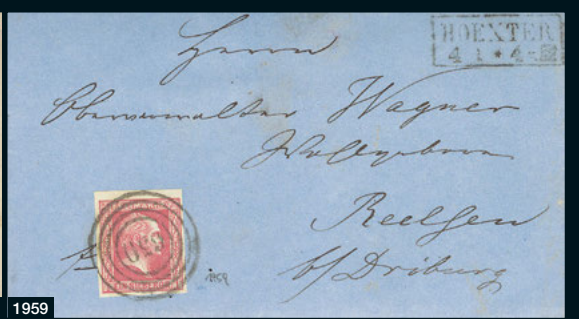 HOEXTER
4 1 * 4-
Herrn
Oberverwalter Wagner
Wohlgeboren
Reelsen
b/ Driburg
1959